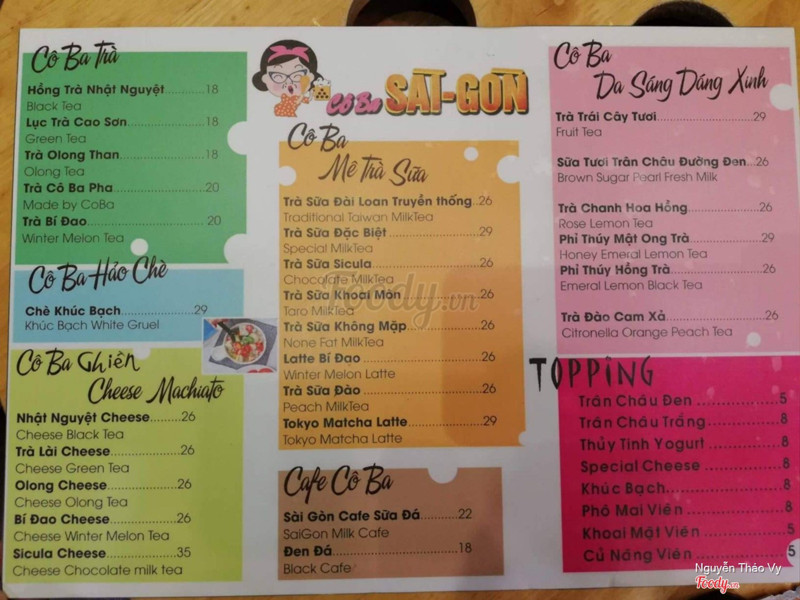 Cô Ba Trà
Hồng Trà Nhật Nguyệt..........18
Black Tea
Lục Trà Cao Sơn..................18
Green Tea
Trà Olong Than....................18
Olong Tea
Trà Cô Ba Pha.....................20
Made by CoBa
Trà Bí Đao...........................20
Winter Melon Tea
Cô Ba Hảo Chè
Chè Khúc Bạch..................29
Khúc Bạch White Gruel
Cô Ba Ghiền
Cheese Machiato
Nhật Nguyệt Cheese........26
Cheese Black Tea
Trà Lài Cheese..................26
Cheese Green Tea
Olong Cheese..................26
Cheese Olong Tea
Bí Đao Cheese.................26
Cheese Winter Melon Tea
Sicula Cheese..................35
Cheese Chocolate milk tea
Cô Ba SAI-GON
Cô Ba
Mê Trà Sữa
Trà Sữa Đài Loan Truyền thống..26
Traditional Taiwan MilkTea
Trà Sữa Đặc Biệt.......................29
Special MilkTea
Trà Sữa Sicula...........................26
Chocolate MilkTea
Trà Sữa Khoai Môn...................26
Taro MilkTea
Trà Sữa Không Mập..................26
None Fat MilkTea
Latte Bí Đao..............................26
Winter Melon Latte
Trà Sữa Đào..............................26
Peach MilkTea
Tokyo Matcha Latte..................29
Tokyo Matcha Latte
Cafe Cô Ba
Sài Gòn Cafe Sữa Đá..........22
SaiGon Milk Cafe
Đen Đá................................18
Black Cafe
Cô Ba
Da Sáng Dáng Xinh
Trà Trái Cây Tươi.......................29
Fruit Tea
Sữa Tươi Trân Châu Đường Đen...26
Brown Sugar Pearl Fresh Milk
Trà Chanh Hoa Hồng..................26
Rose Lemon Tea
Phỉ Thúy Mật Ong Trà..................29
Honey Emeral Lemon Tea
Phỉ Thúy Hồng Trà.......................26
Emeral Lemon Black Tea
Trà Đào Cam Xả..........................26
Citronella Orange Peach Tea
TOPPING
Trân Châu Đen....................5
Trân Châu Trắng..................8
Thủy Tinh Yogurt..................8
Special Cheese...................8
Khúc Bạch..........................8
Phô Mai Viên......................8
Khoai Mật Viên...................5
Củ Năng Viên.....................5
Foody.vn
Nguyễn Thảo Vy
Foody.vn